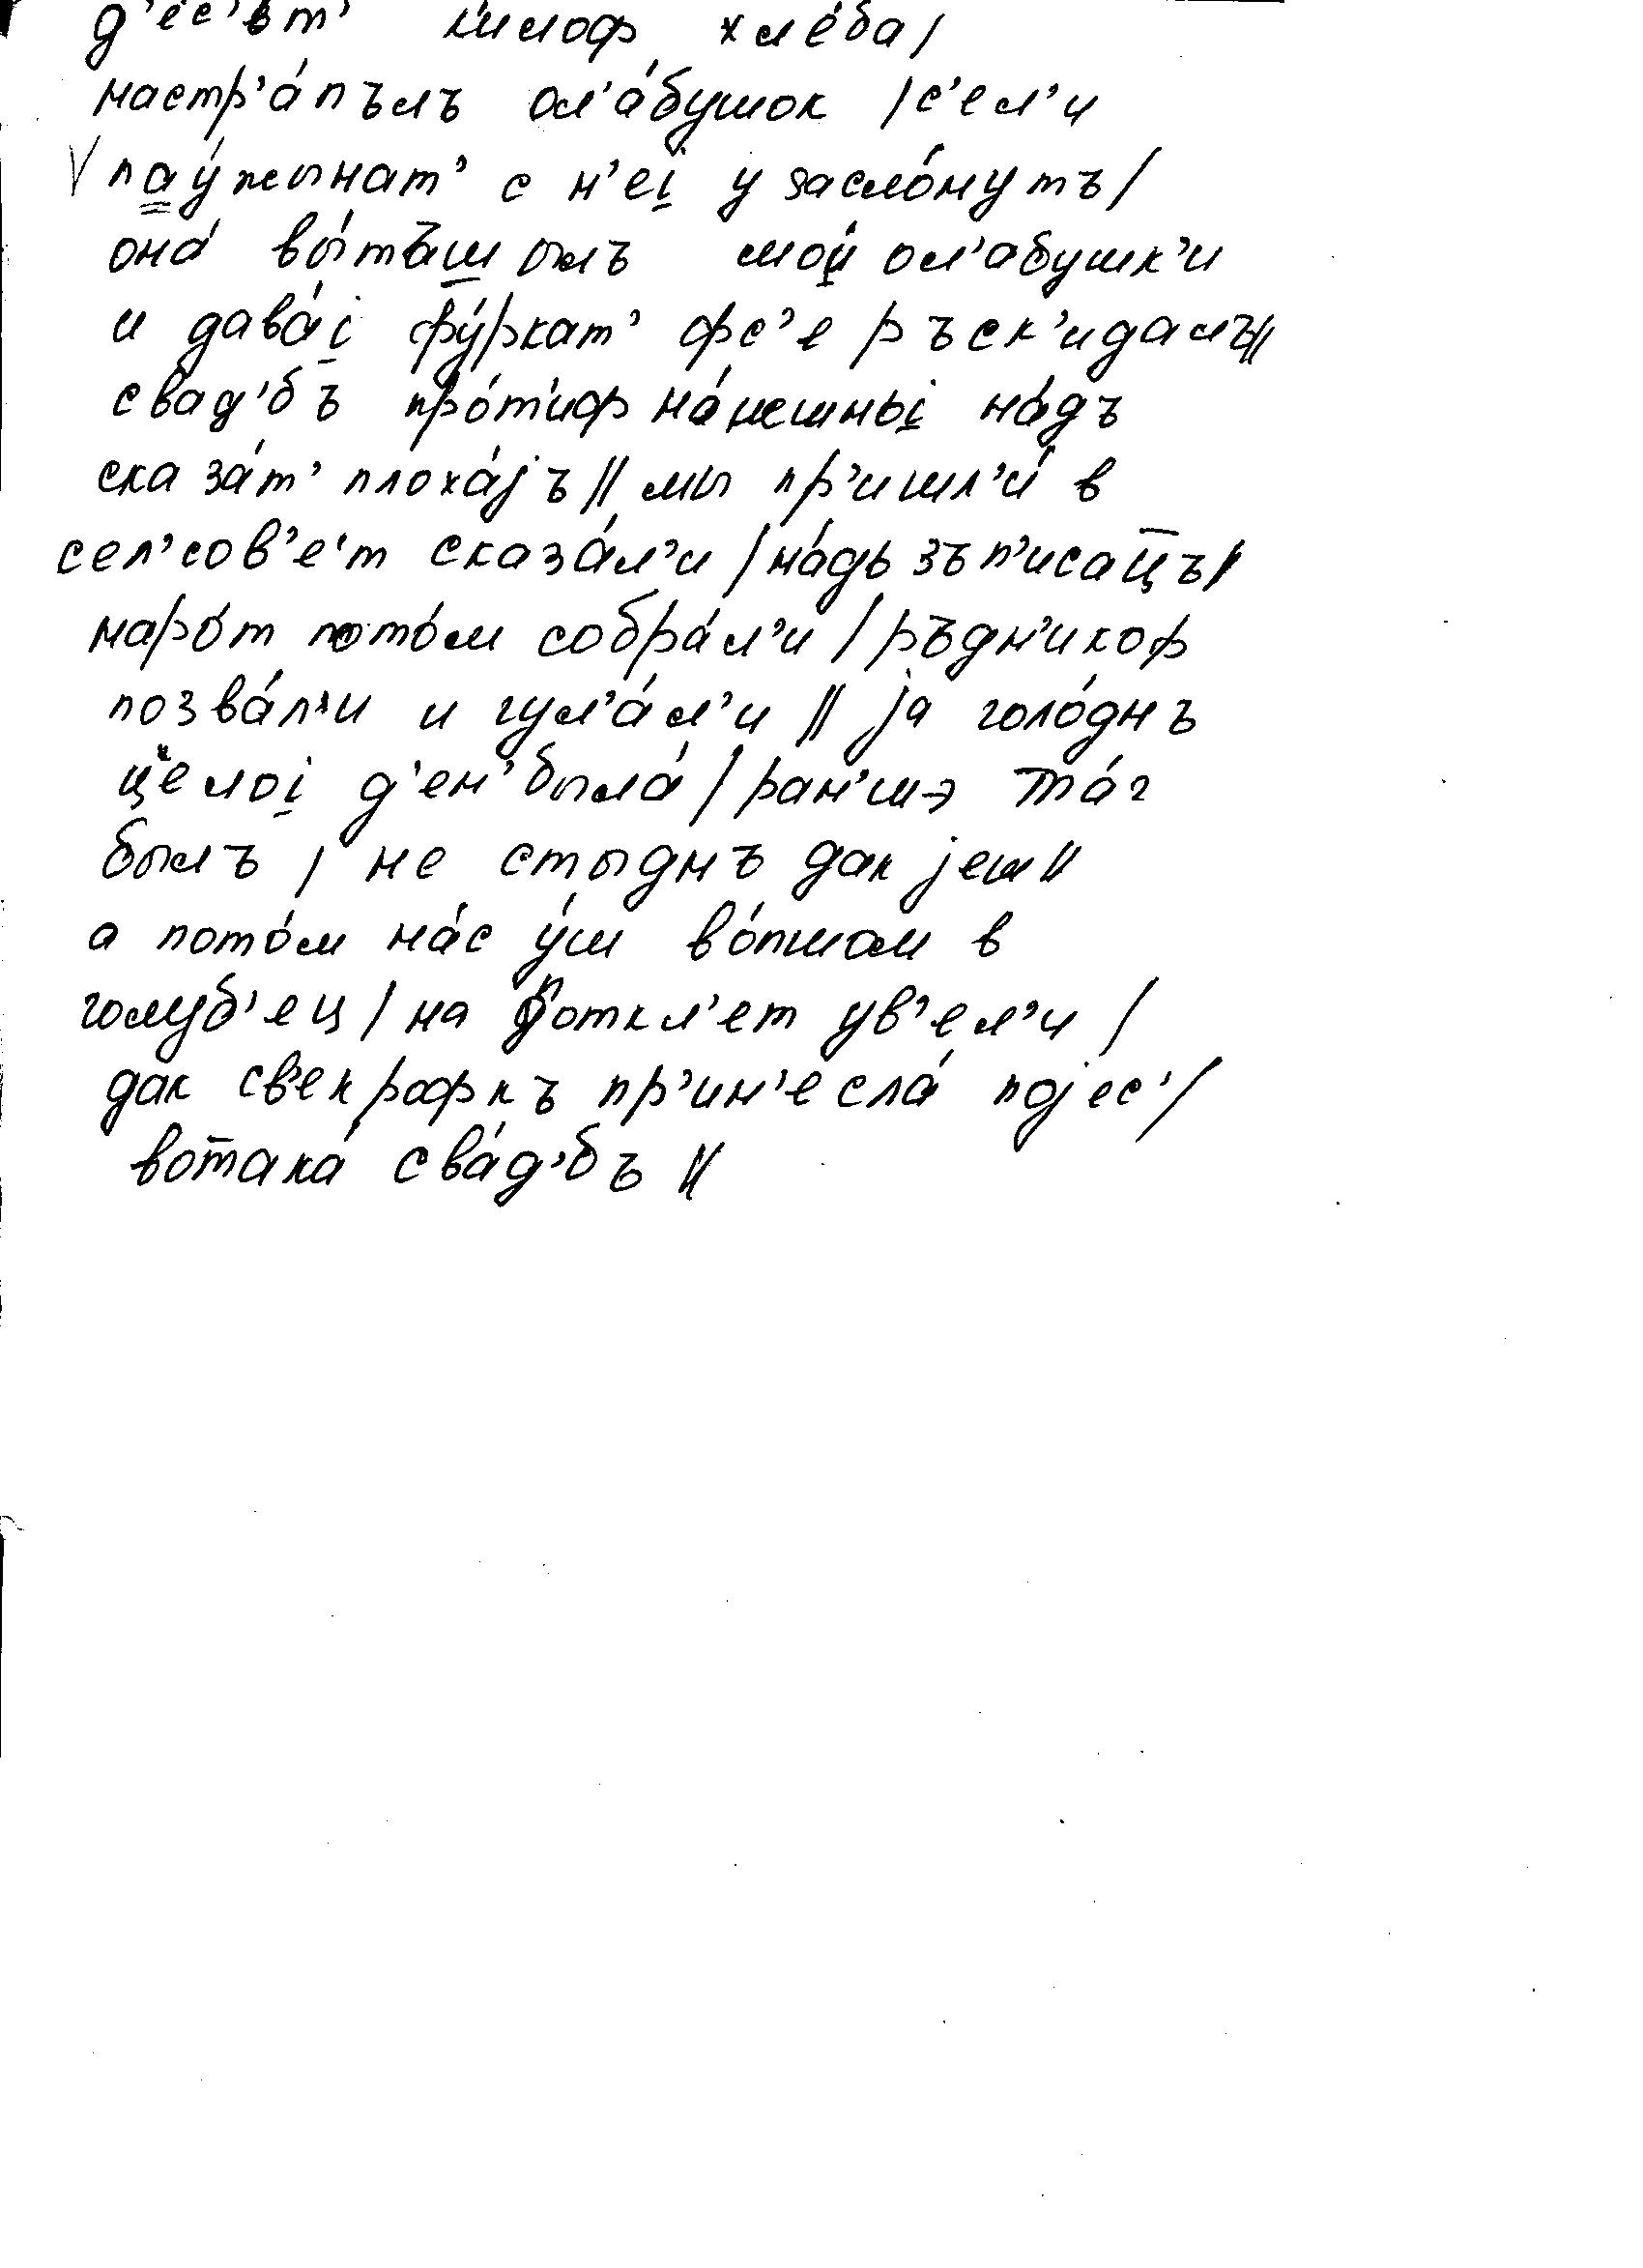 д'ес'ьт' к'илоф хле́ба/
настр'а́пълъ ол'а́бушок /с'ел'и
√ пау́жынат' с н'еі̯ у засло́нутъ/
она́ вы́тъшшылъ мои́ ол'абушк'и
и дава́і̯ фу́ркат' фс'е ръск'идалъ//
свад'бъ про́т'иф на́нешныі̯ на́дъ
сказа́т' плоха́јъ// мы пр'ишл'и́ в
сел'сов'е́т сказа́л'и /на́дь зъп'исац̄ъ//
наро́т пото́м собра́л'и /ръдн'икоф
позва́л'и и гул'а́л'и // ја голо́днъ
целоі̯ д'ен' была́ /ран'шэ та́г
былъ / не стыднъ дак јеш//
а пото́м на́с у́ш во́пшом в
голуб'ец / на поткл'ет ув'ел'и /
дак св'екрофкъ пр'ин'есла́ појес'/
вот̄ака́ сва́д'бъ //